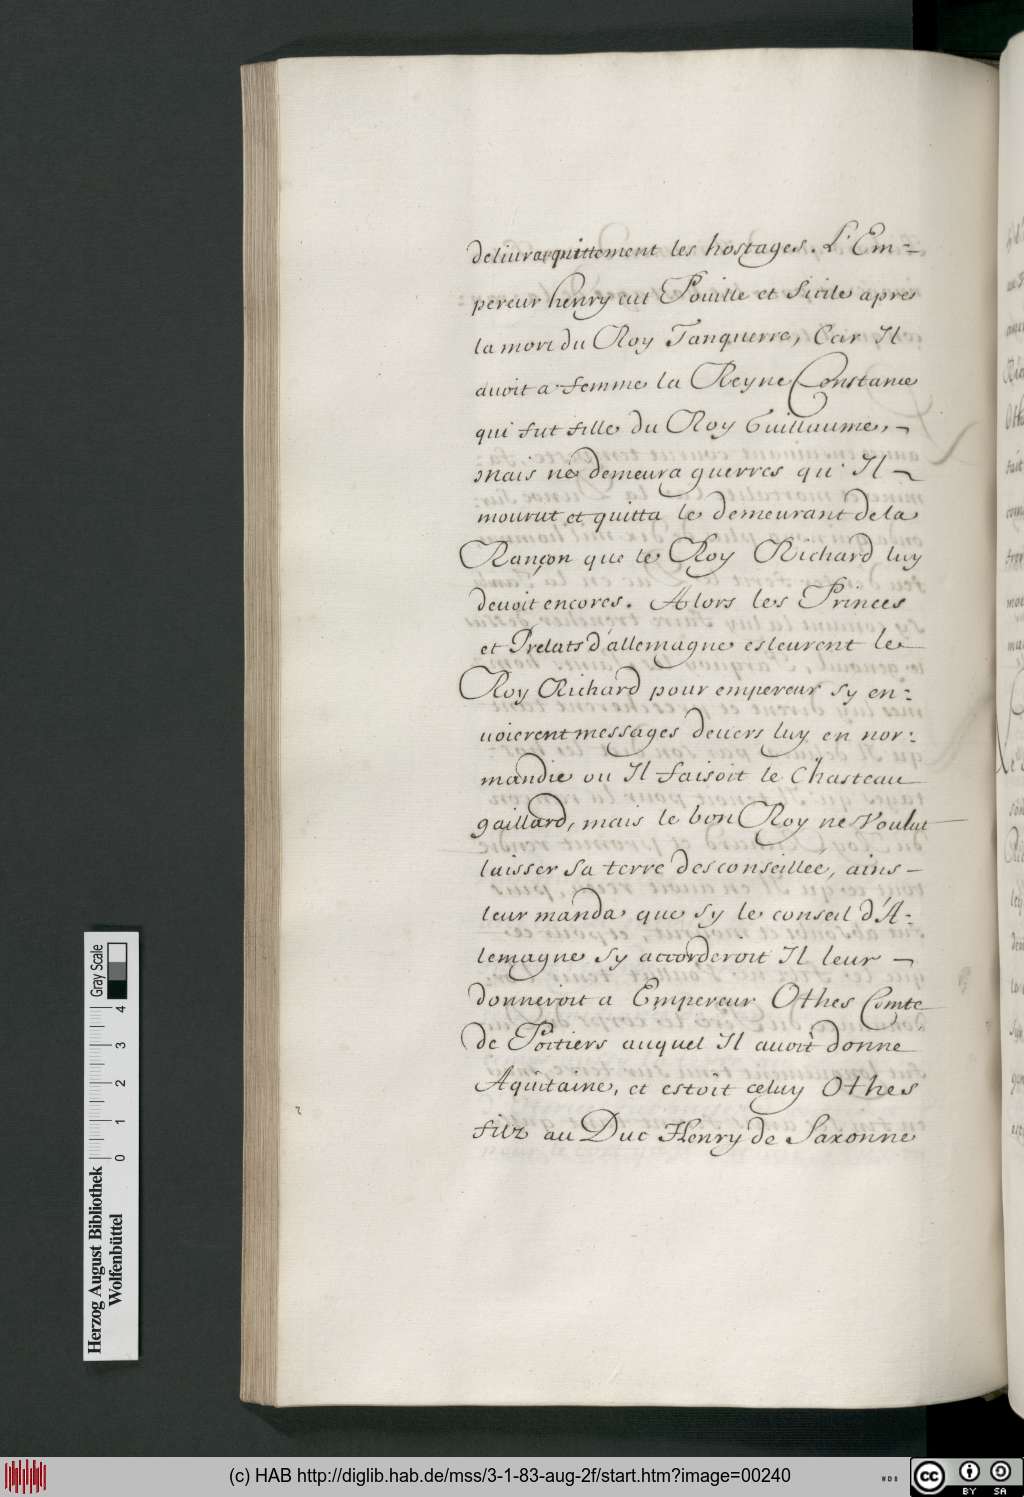 deliura quittement les hostages. L'Em-
pereur henry eut Pouille et Sicile apres
la mort du Roy Tanquerre, Car Il
auoit a femme la Reyne Constance
qui fut fille du Roy Guillaume,
mais ne demeura guerres qu'Il
mourut et quitta le demeurant de la
Rançon que le Roy Richard luy
deuoit encores. Alors les Princes
et Prelats d'allemagne esleurent le
Roy Richard pour empereur sy en-
uoierent messages deuers luy en nor-
mandie ou Il faisoit le Chasteau
gaillard, mais le bon Roy ne Voulut
laisser sa terre desconseillée, ains
leur manda que sy le conseil d'A-
lemagne sy accorderoit Il leur
donneroit a Empereur Othes Comte
de Poitiers auquel Il auoit donne
Aquitaine, et estoit celuy Othes
filz au Duc Henry de Saxonne
Herzog August Bibliothek
Wolfenbüttel
0 1 2 3 4
Gray Scale
(c) HAB http://diglib.hab.de/mss/3-1-83-aug-2f/start.htm?image=00240
WDB
cc BY SA